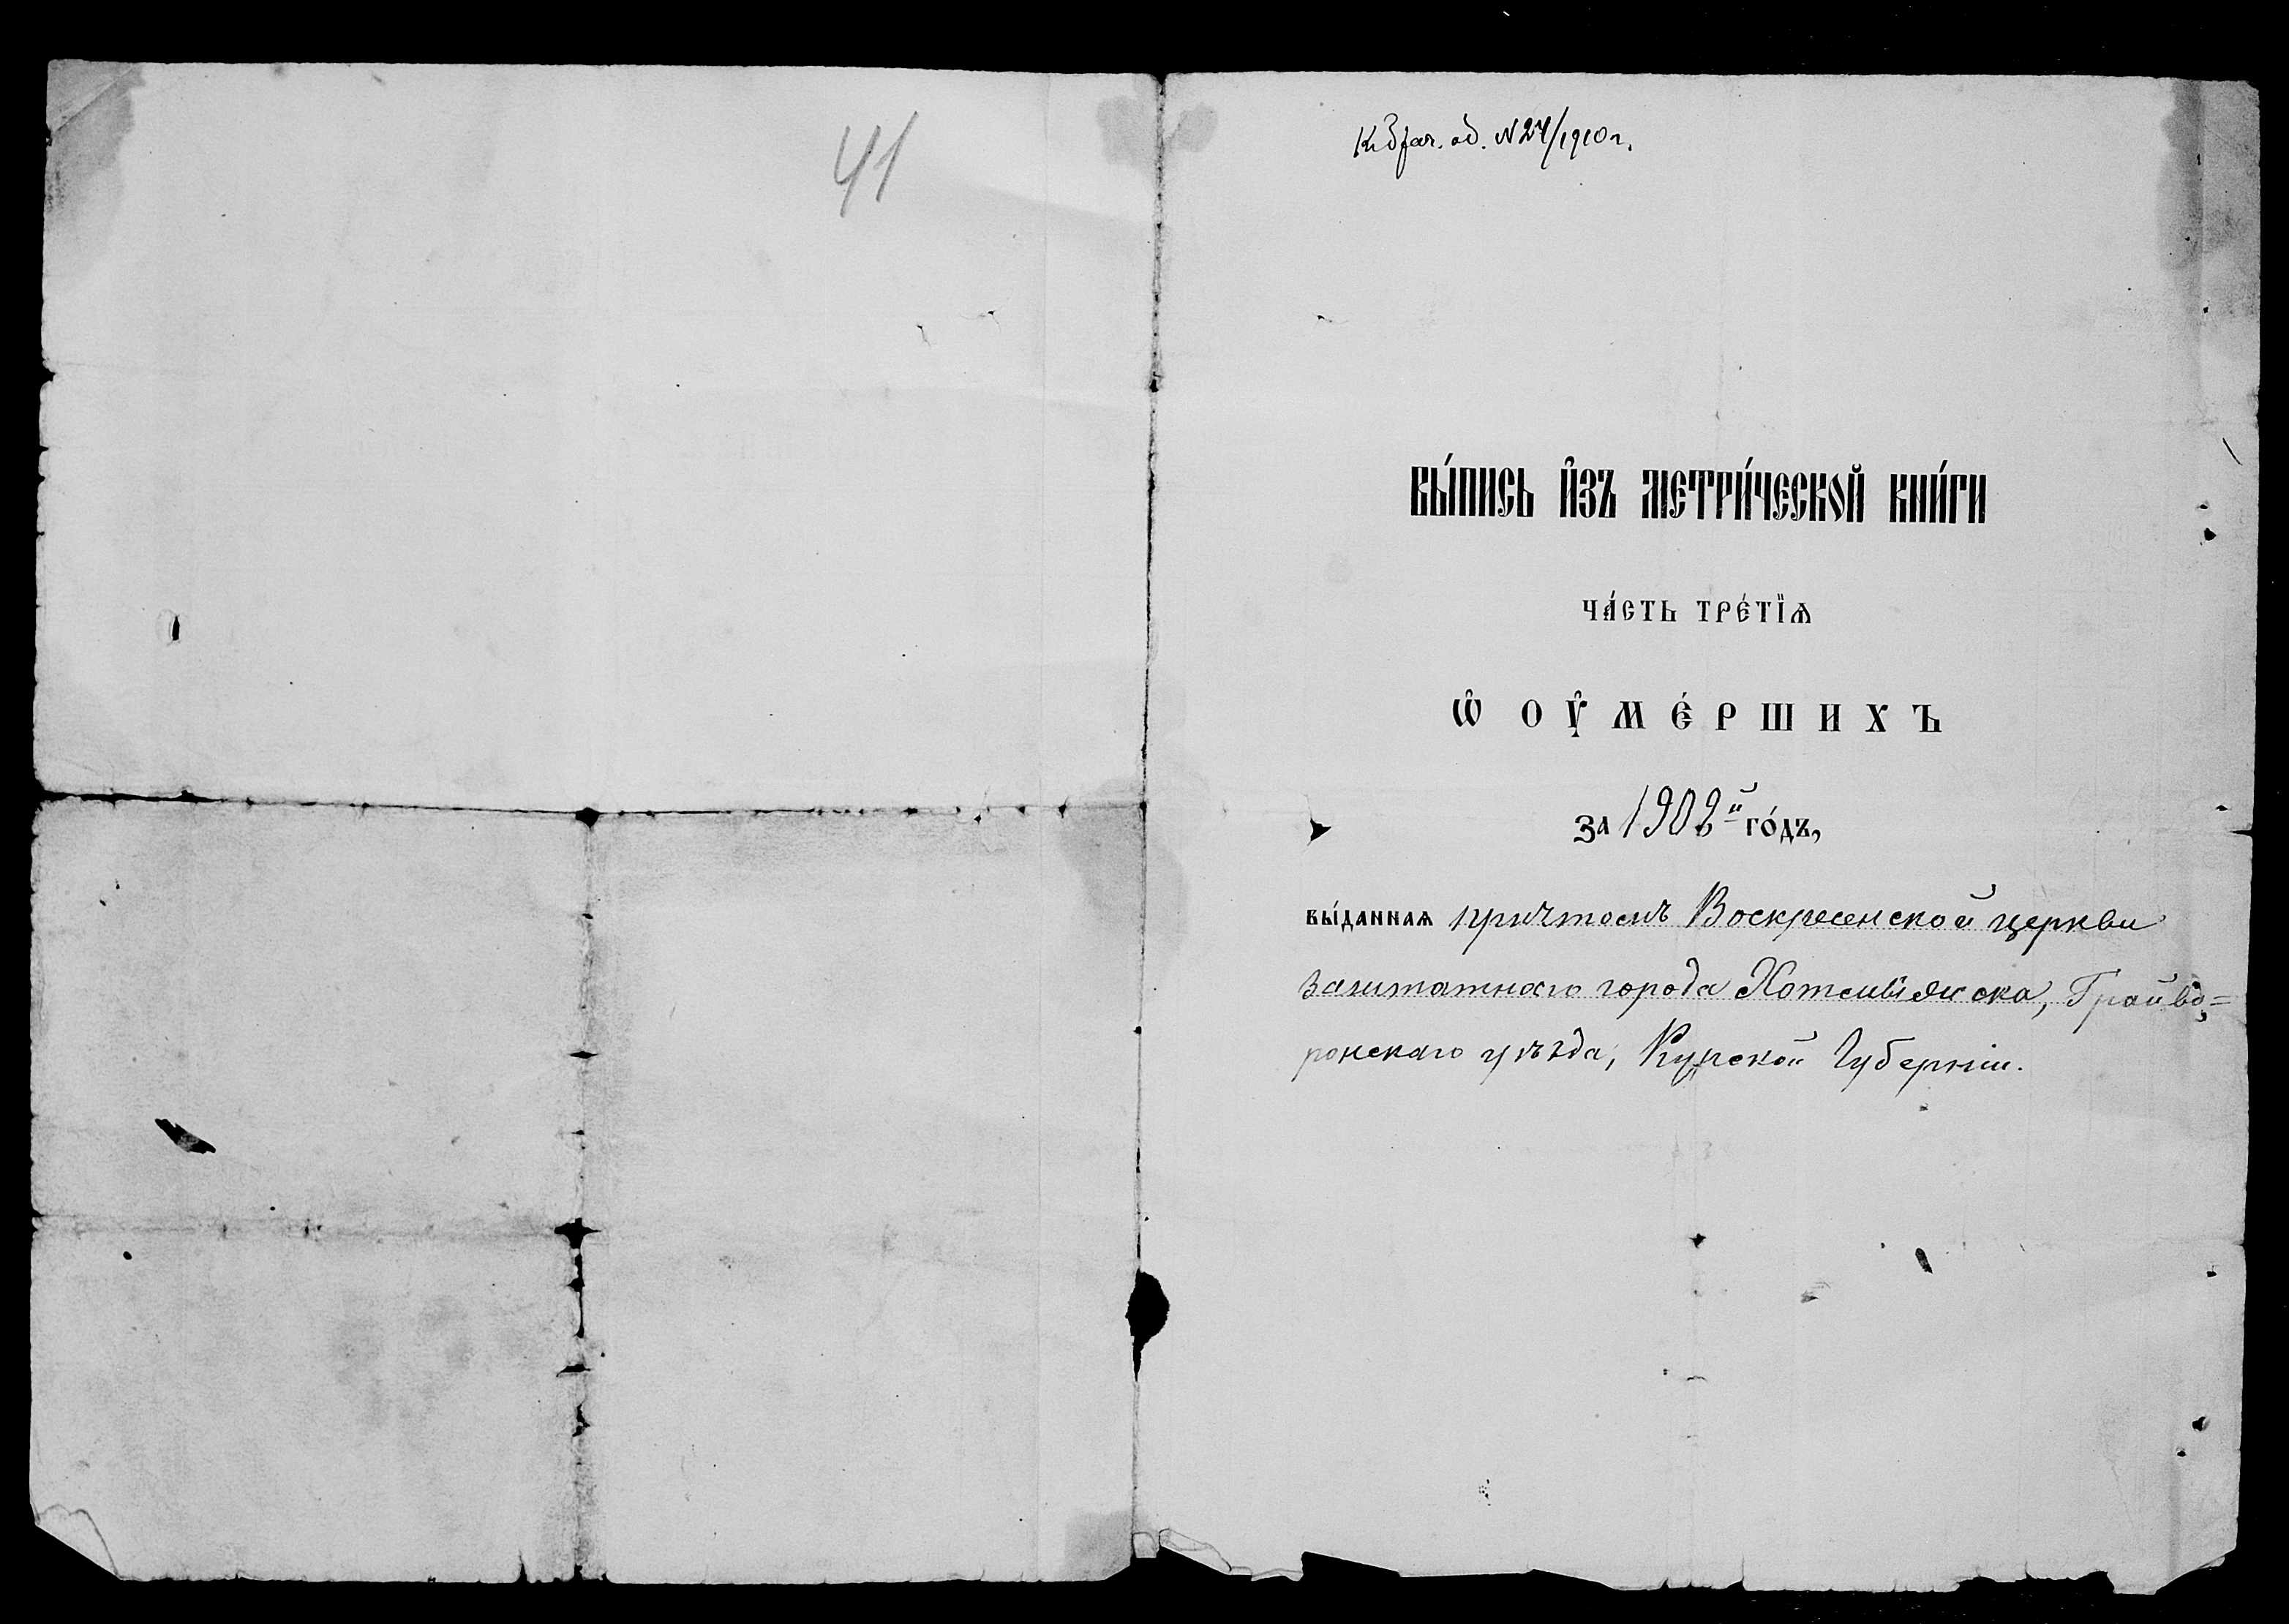 41
N 27/1910 г.
вы́пись и҆зъ метри́ческой кни́ги
ча́сть тре́тїѧ
ѡ҆ оу҆ме́ршихъ
за 1902й го́дъ,
вы́даннаѧ причтомъ Воскресенской церкви
заштатнаго города Хотмыжска, Грайво=
ронскаго уѣзда, Курской Губерніи.